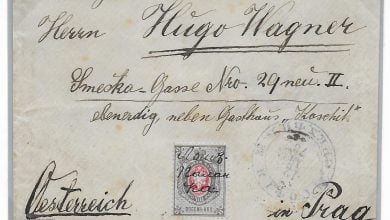 Herrn Hugo Wagner
Smeska-Gasse Nro. 29 neu. II.
ebenerdig, neben Gasthaus „Koschik"
Oesterreich
in Prag